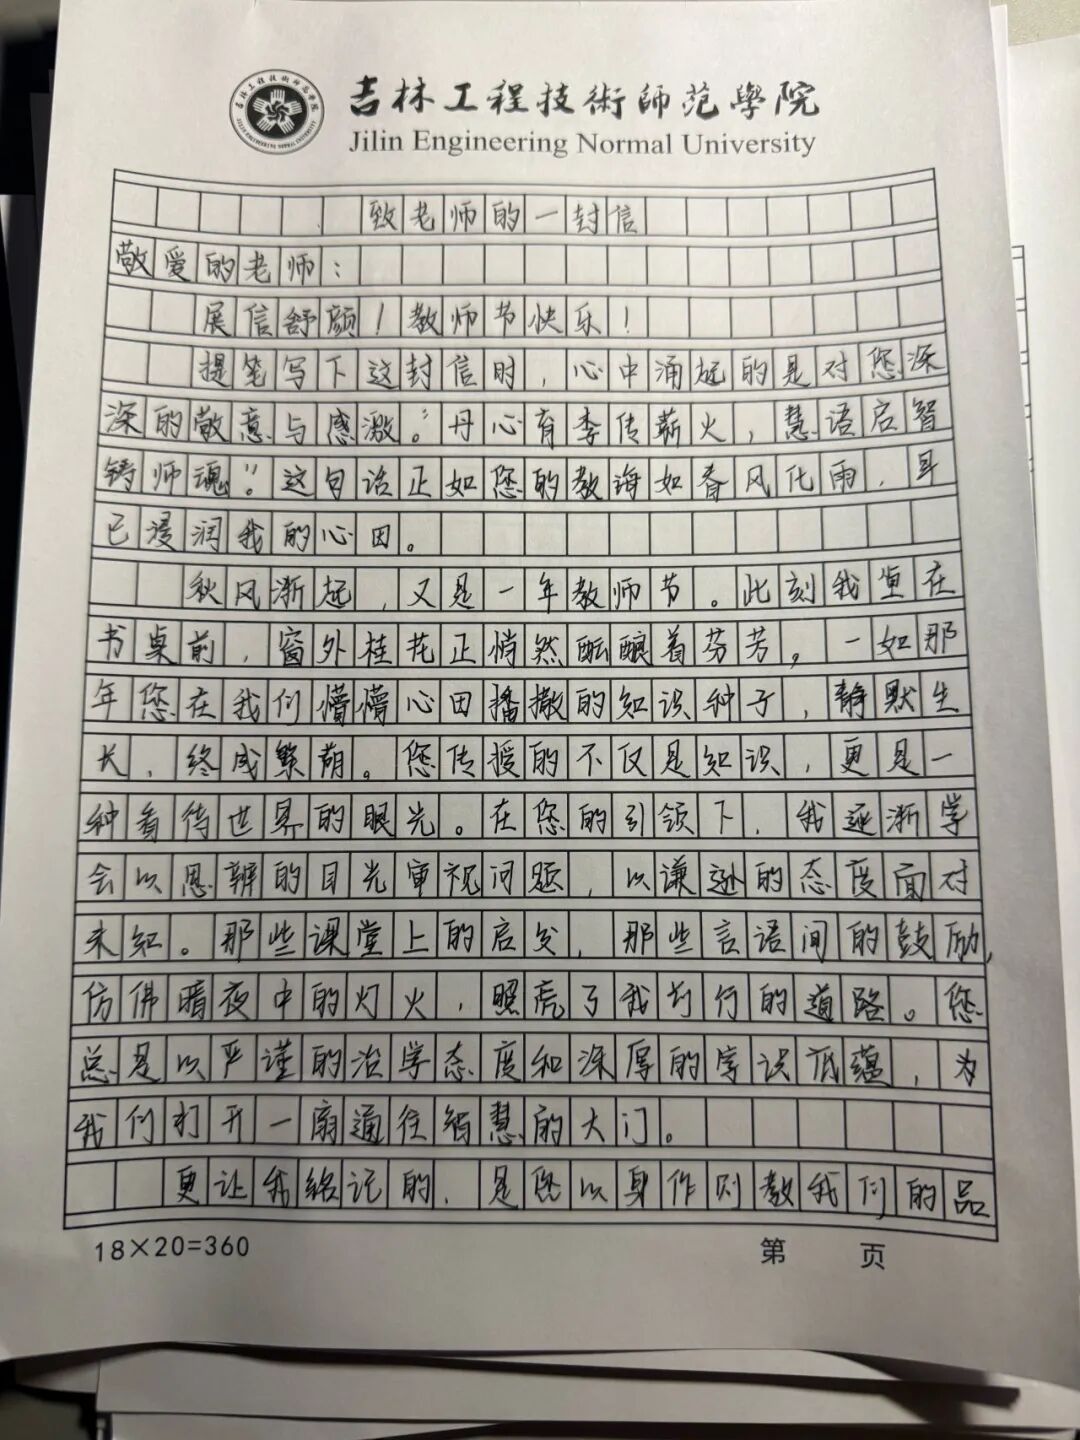 吉林工程技術師范學院
Jilin Engineering Normal University
致老师的一封信
敬爱的老师：
展信舒颜！教师节快乐！
提笔写下这封信时，心中涌起的是对您深
深的敬意与感激。“丹心育李传薪火，慧语启智
铸师魂。”这句话正如您的教诲如春风化雨，早
已浸润我的心田。
秋风渐起，又是一年教师节。此刻我坐在
书桌前，窗外桂花正悄然酝酿着芬芳，一如那
年您在我们懵懵心田播撒的知识种子，静默生
长，终成繁荫。您传授的不仅是知识，更是一
种看待世界的眼光。在您的引领下，我逐渐学
会以思辨的目光审视问题，以谦逊的态度面对
未知。那些课堂上的启发，那些言语间的鼓励，
仿佛暗夜中的灯火，照亮了我前行的道路。您
总是以严谨的治学态度和深厚的学识底蕴，为
我们打开一扇通往智慧的大门。
更让我铭记的，是您以身作则教我们的品
18×20=360
第 页